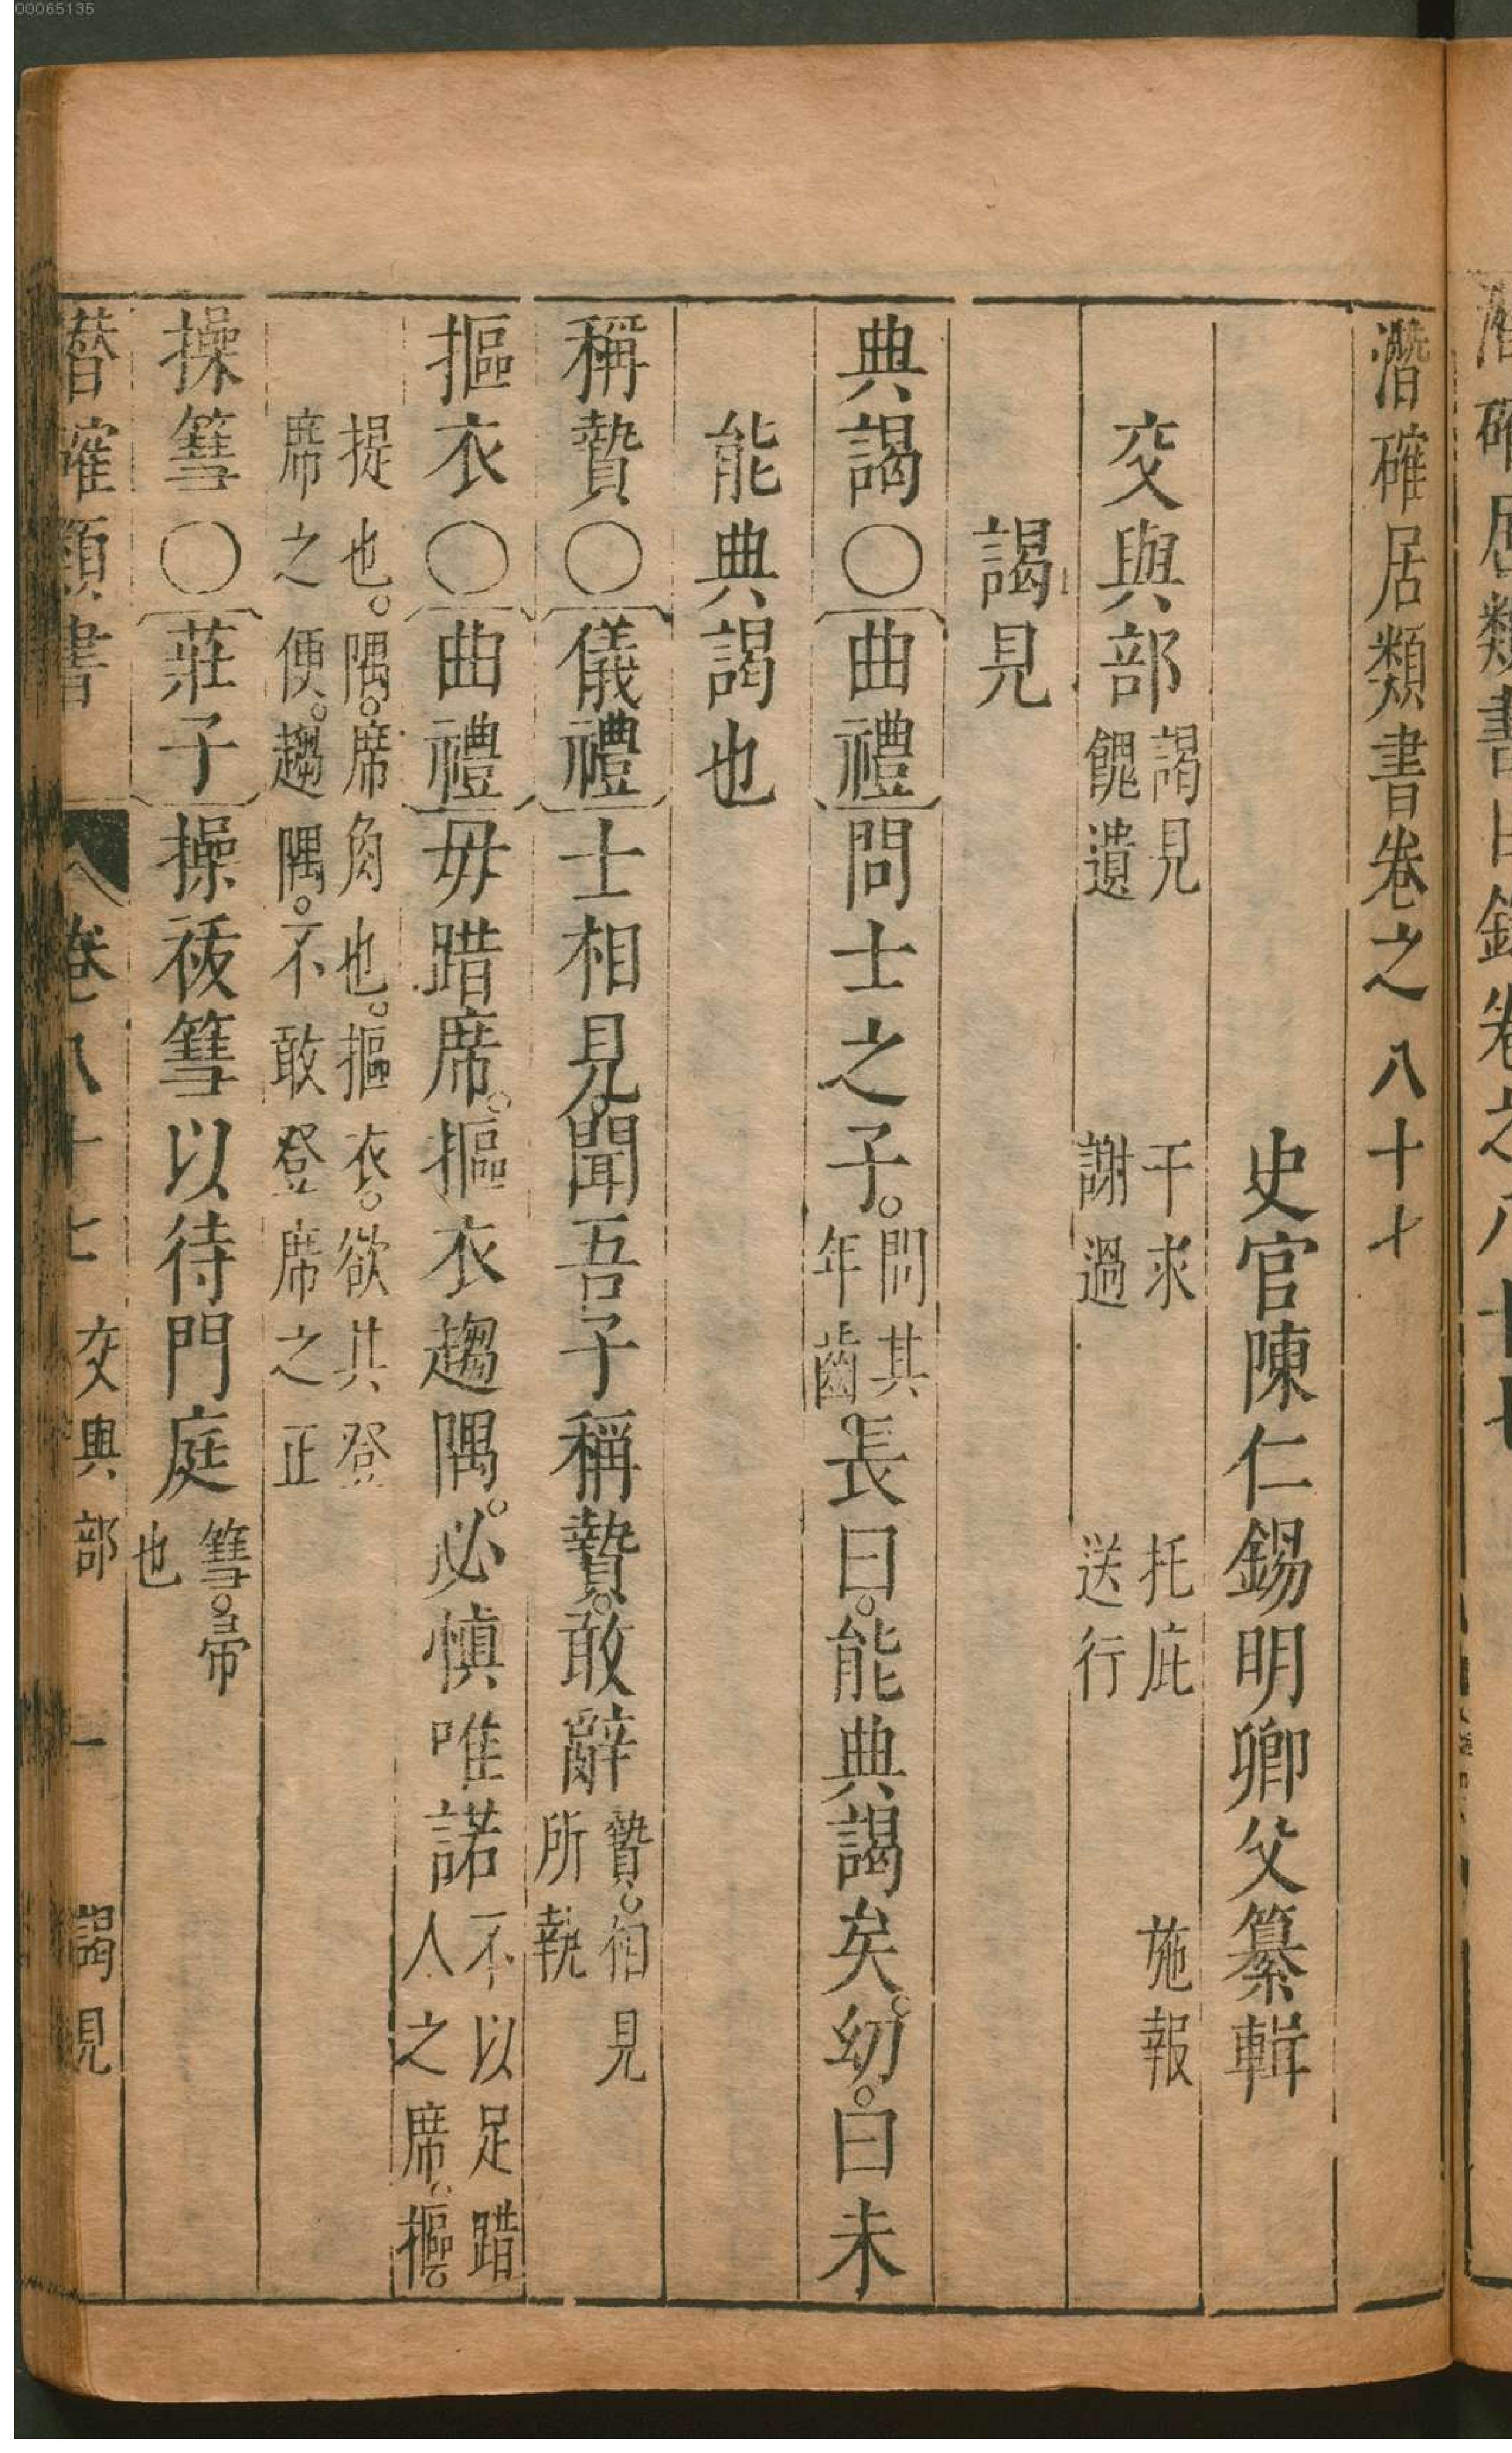 00065135
潛確居類書卷之八十七
史官陳仁錫明卿父纂輯
交與部 謁見 干求 托庇 施報
餽遺 謝過 送行
謁見
典謁○曲禮問士之子。問其年齒。長曰。能典謁矣。幼。曰未
能典謁也
稱贄○儀禮士相見。聞吾子稱贄。敢辭贄。相見所執
摳衣○曲禮毋踖席。摳衣趨隅。必慎唯諾不以足踖人之席。摳。
提也。隅。席角也。摳衣。欲其登
席之便。趨隅。不敢登席之正
操篲○莊子操祓篲以待門庭篲。帚也
卷八十七 交與部 一 謁見